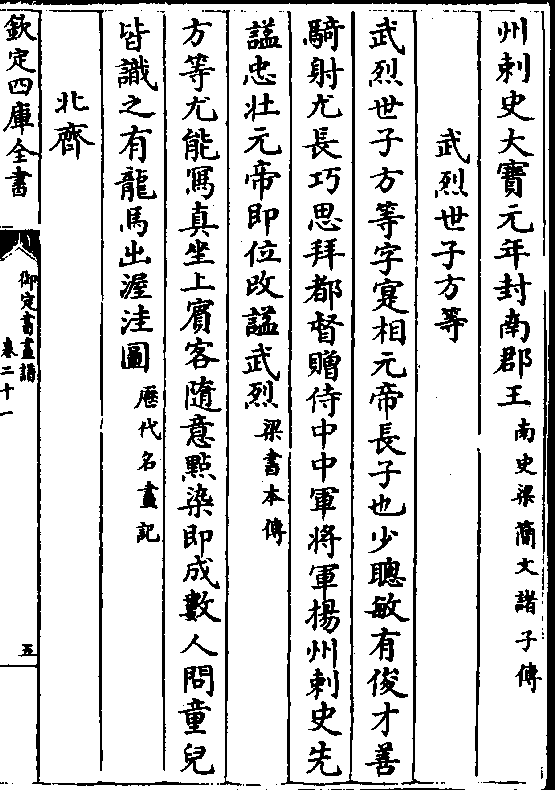 州刺史大寳元年封南郡王南史梁簡文諸子傳
武烈世子方等
武烈世子方等字寔相元帝長子也少聰敏有俊才善
騎射尤長巧思拜都督贈侍中中軍将軍揚州刺史先
諡忠壮元帝即位改諡武烈梁書本傳
方等尤能冩真坐上賓客隨意點染即成數人問童兒
皆識之有龍馬出渥洼圖歴代名畫記
北齊
欽定四庫全書
御定書畫譜
卷二十一
五